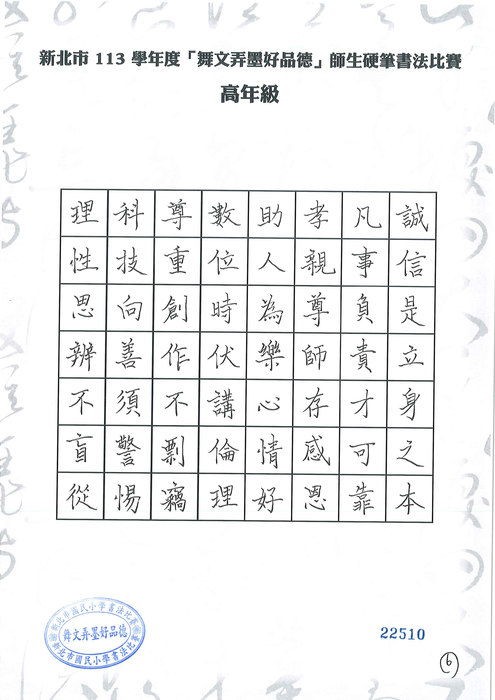 新北市 113 學年度「舞文弄墨好品德」師生硬筆書法比賽
高年級
誠信是立身之本
凡事負責才可靠
孝親尊師存感恩
助人為樂心情好
數位時代講倫理
尊重創作不剽竊
科技向善須警惕
理性思辨不盲從
新北市國民小學書法比賽
舞文弄墨好品德
新北市國民小學書法比
22510
6